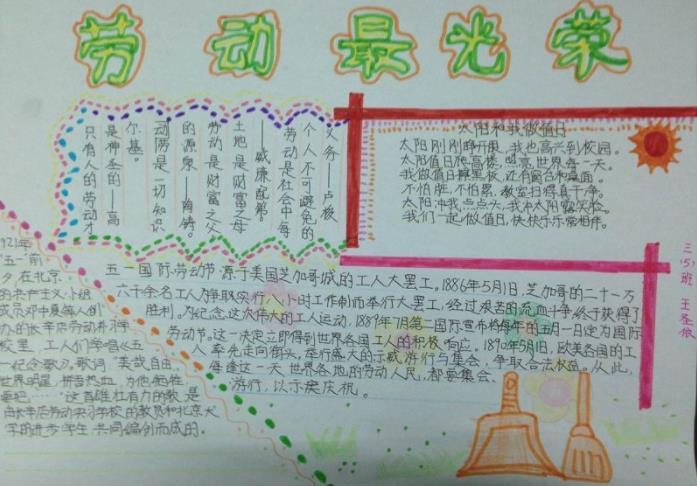 劳动最光荣
义务——卢梭
个人不可避免的
劳动是社会中每
——威廉配第。
土地是财富之母
劳动是财富之父
的源泉——陶铸。
动两是一切知识
尔基。
是神圣的——高
只有人的劳动才
太阳和我做值日
太阳刚刚睁开眼,我也高兴到校园。
太阳值日爬高楼,世界每一天。
我做值日擦黑板,还有窗台和桌面。
不怕脏,不怕累,教室扫得真干净。
太阳冲我点点头,我冲太阳露笑脸。
我们一起做值日,快快乐乐常相伴。
三(5)班 王圣
五一国际劳动节源于美国芝加哥城的工人大罢工。1886年5月1日,芝加哥的二十一万
六千余名工人为争取实行八小时工作制而举行大罢工,经过艰苦的流血斗争,终于获得了
胜利。为纪念这次伟大的工人运动,1889年7月第二国际宣布将每年的五月一日定为国际
劳动节。这一决定立即得到世界各国工人的积极响应。1890年5月1日,欧美各国的工
人率先走向街头,举行盛大的示威游行与集会,争取合法权益。从此,
每逢这一天世界各地的劳动人民,都要集会、
游行,以示庆祝。
1921年
"五一"前
夕,在北京
的共产主义小组
成员邓中夏等人创
办的长辛店劳动补习学
校里,工人们学唱《五
一纪念歌》。歌词"美哉自由,
世界明星,拼吾热血,为他牺牲
……"这首雄壮有力的歌,是
由长辛店劳动实习学校的教员和北京大
学的进步学生共同编创而成的。